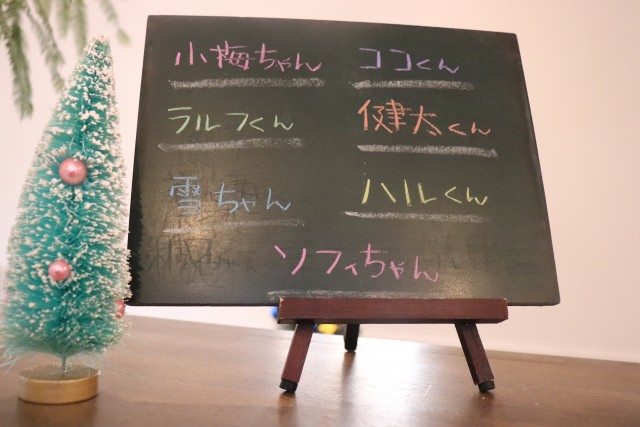 小梅ちゃん
ココくん
ラルフくん
健太くん
雪ちゃん
ハルくん
ソフィちゃん